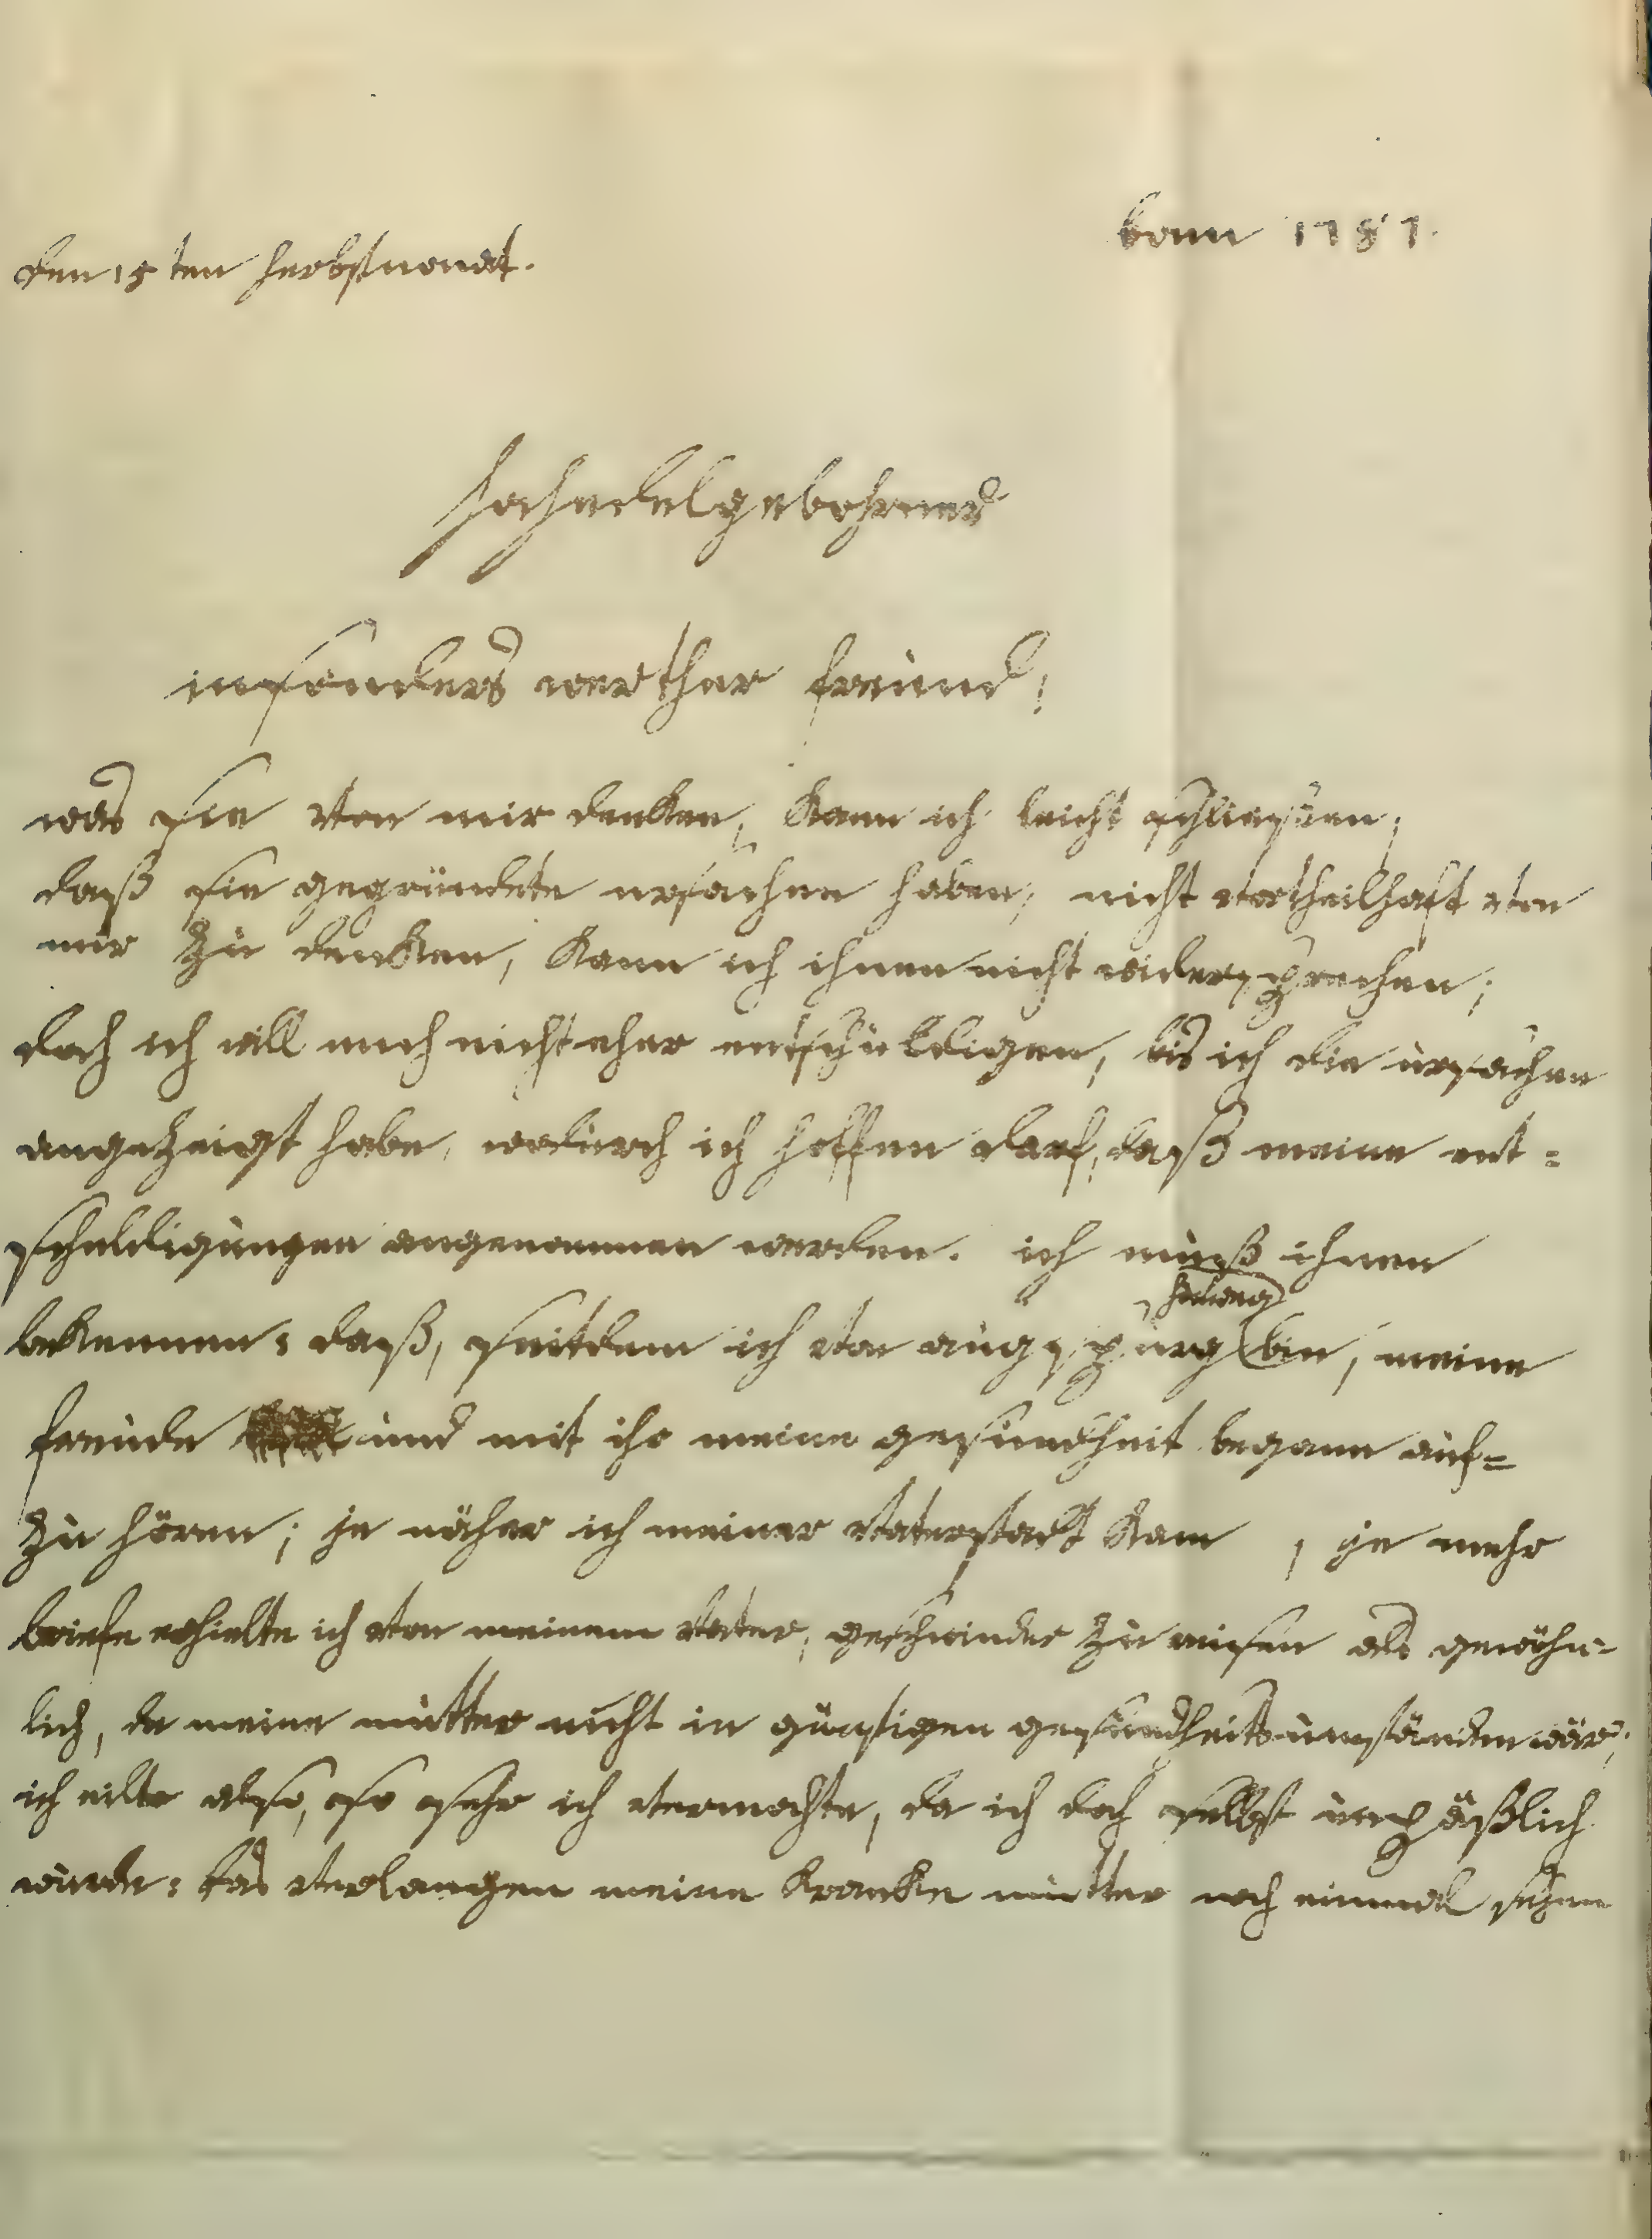 den 15ten herbstmonat.
bonn 1787.
hochedelgebohrner
insonders werther freund!
was sie von mir denken, kann ich leicht schliessen;
daß sie gegründete ursachen haben, nicht vortheilhaft von
mir zu denken, kann ich ihnen nicht widersprechen;
doch ich will mich nicht eher entschuldigen, bis ich die ursachen
angezeigt habe, wodurch ich hoffen darf, daß meine ent=
schuldigungen angenommen werden. ich muß ihnen
hinweg
bekennen: daß, seitdem ich von augspurg bin, meine
freude und mit ihr meine gesundheit begann auf=
zu hören; je näher ich meiner vaterstadt kam, je mehr
briefe erhielte ich von meinem vater, geschwinder zu reisen als gewöhn=
lich, da meine mutter nicht in günstigen gesundheitsumständen wär;
ich eilte also, so sehr ich vermochte, da ich doch selbst unpäßlich
wurde: das verlangen meine kranke mutter noch einmal sehen